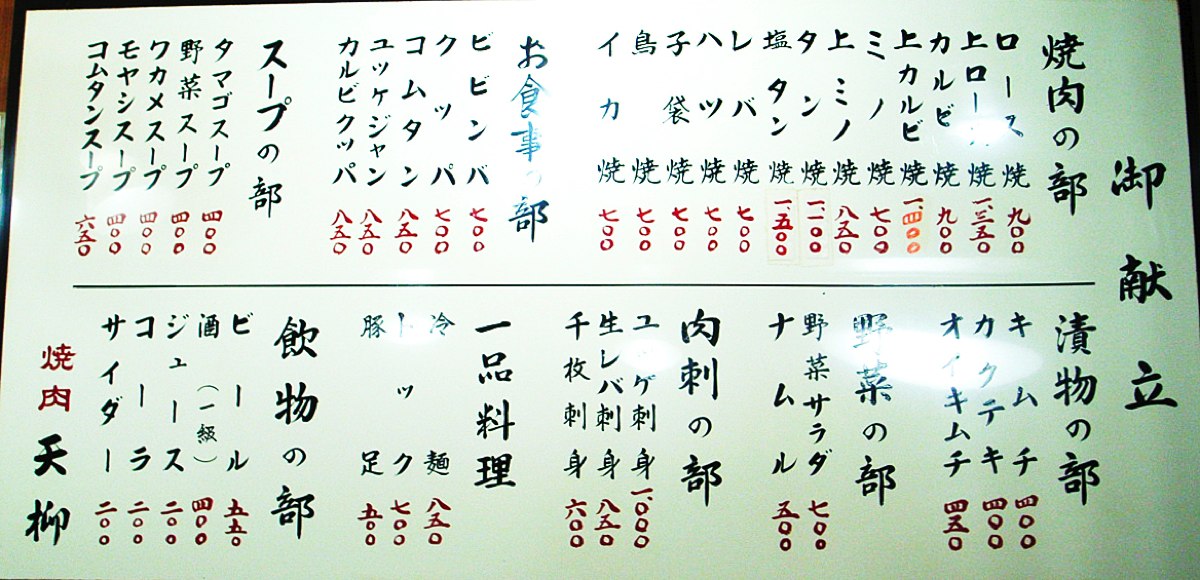 御献立
焼肉の部
ロース焼 九〇〇
上ロース焼 一、三五〇
カルビ焼 九〇〇
上カルビ焼 一、四〇〇
ミノ焼 七〇〇
上ミノ焼 八五〇
タン焼 一、一〇〇
塩タン焼 一、五〇〇
レバ焼 七〇〇
ハツ焼 七〇〇
子袋焼 七〇〇
鳥焼 七〇〇
イカ焼 七〇〇
お食事の部
ビビンバ 七〇〇
クッパ 七〇〇
コムタン 八五〇
ユッケジャン 八五〇
カルビクッパ 八五〇
スープの部
タマゴスープ 四〇〇
野菜スープ 四〇〇
ワカメスープ 四〇〇
モヤシスープ 四〇〇
コムタンスープ 六五〇
漬物の部
キムチ 四〇〇
カクテキ 四〇〇
オイキムチ 四五〇
野菜の部
野菜サラダ 七〇〇
ナムル 五〇〇
肉刺の部
ユッケ刺身 一、〇〇〇
生レバ刺身 八五〇
千枚刺身 六〇〇
一品料理
冷麺 八五〇
トック 七〇〇
豚足 五〇〇
飲物の部
ビール 五五〇
酒（一級） 四〇〇
ジュース 二〇〇
コーラ 二〇〇
サイダー 二〇〇
焼肉天柳